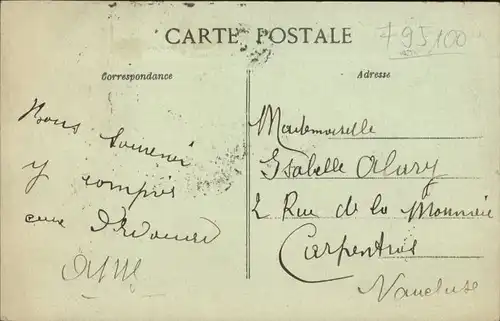 CARTE POSTALE
795/100
Correspondance
Adresse
Bons Souvenir
y compris
Mademoiselle
Isabelle Alary
2 Rue de la Monnaie
Carpentras
Vaucluse